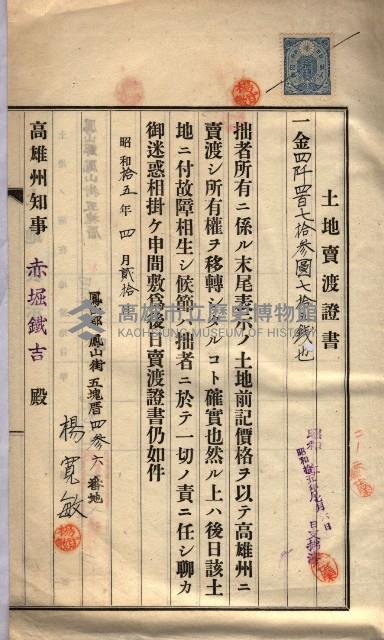 土地賣渡證書
一金四阡四百七拾參圓七拾錢也
拙者所有ニ係ル末尾表示ノ土地前記價格ヲ以テ高雄州ニ
賣渡シ所有權ヲ移轉シタルコト確實也然ル上ハ後日該土
地ニ付故障相生シ候節ハ拙者ニ於テ一切ノ責ニ任シ聊カ
御迷惑相掛ケ申間敷爲後日賣渡證書仍如件
昭和拾五年四月貳拾
鳳山郡鳳山街五塊厝四參六番地
楊寬敏
高雄州知事 赤堀鐵吉 殿
高雄市立歷史博物館
MUSEUM OF HISTORY